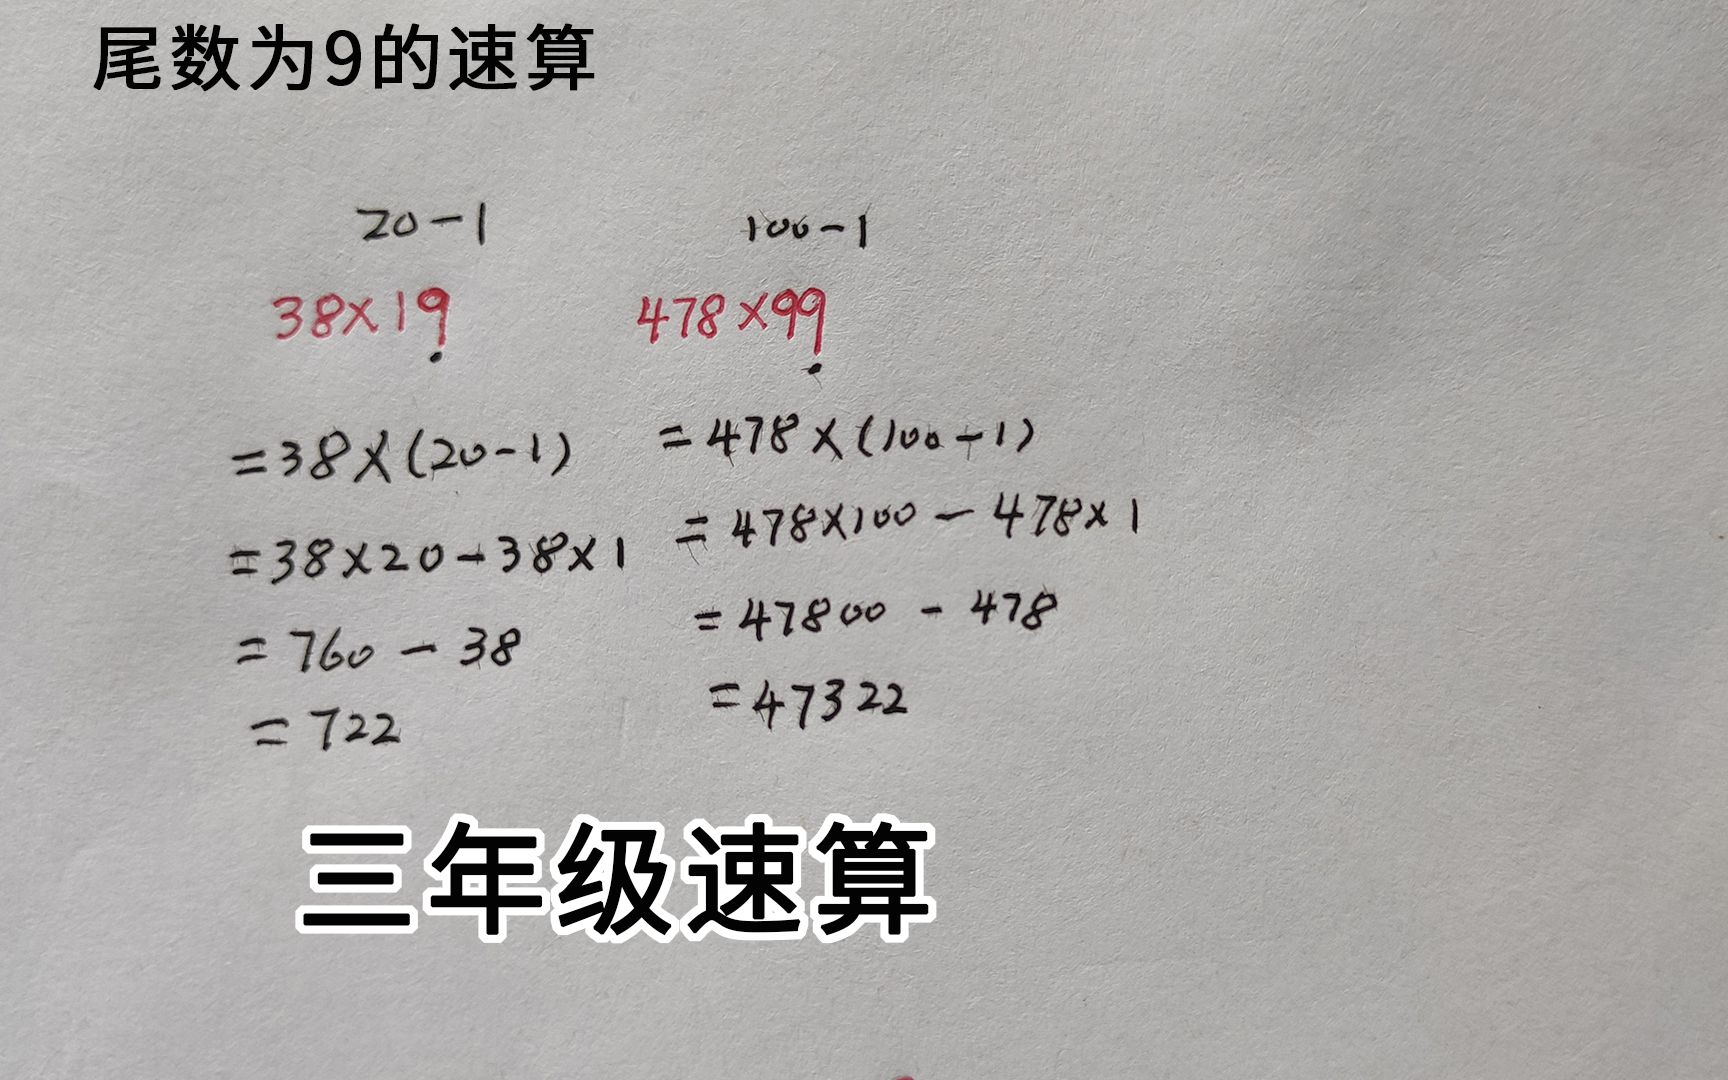 尾数为9的速算
20-1
38×19
=38×(20-1)
=38×20-38×1
=760-38
=722
100-1
478×99
=478×(100-1)
=478×100-478×1
=47800-478
=47322
三年级速算